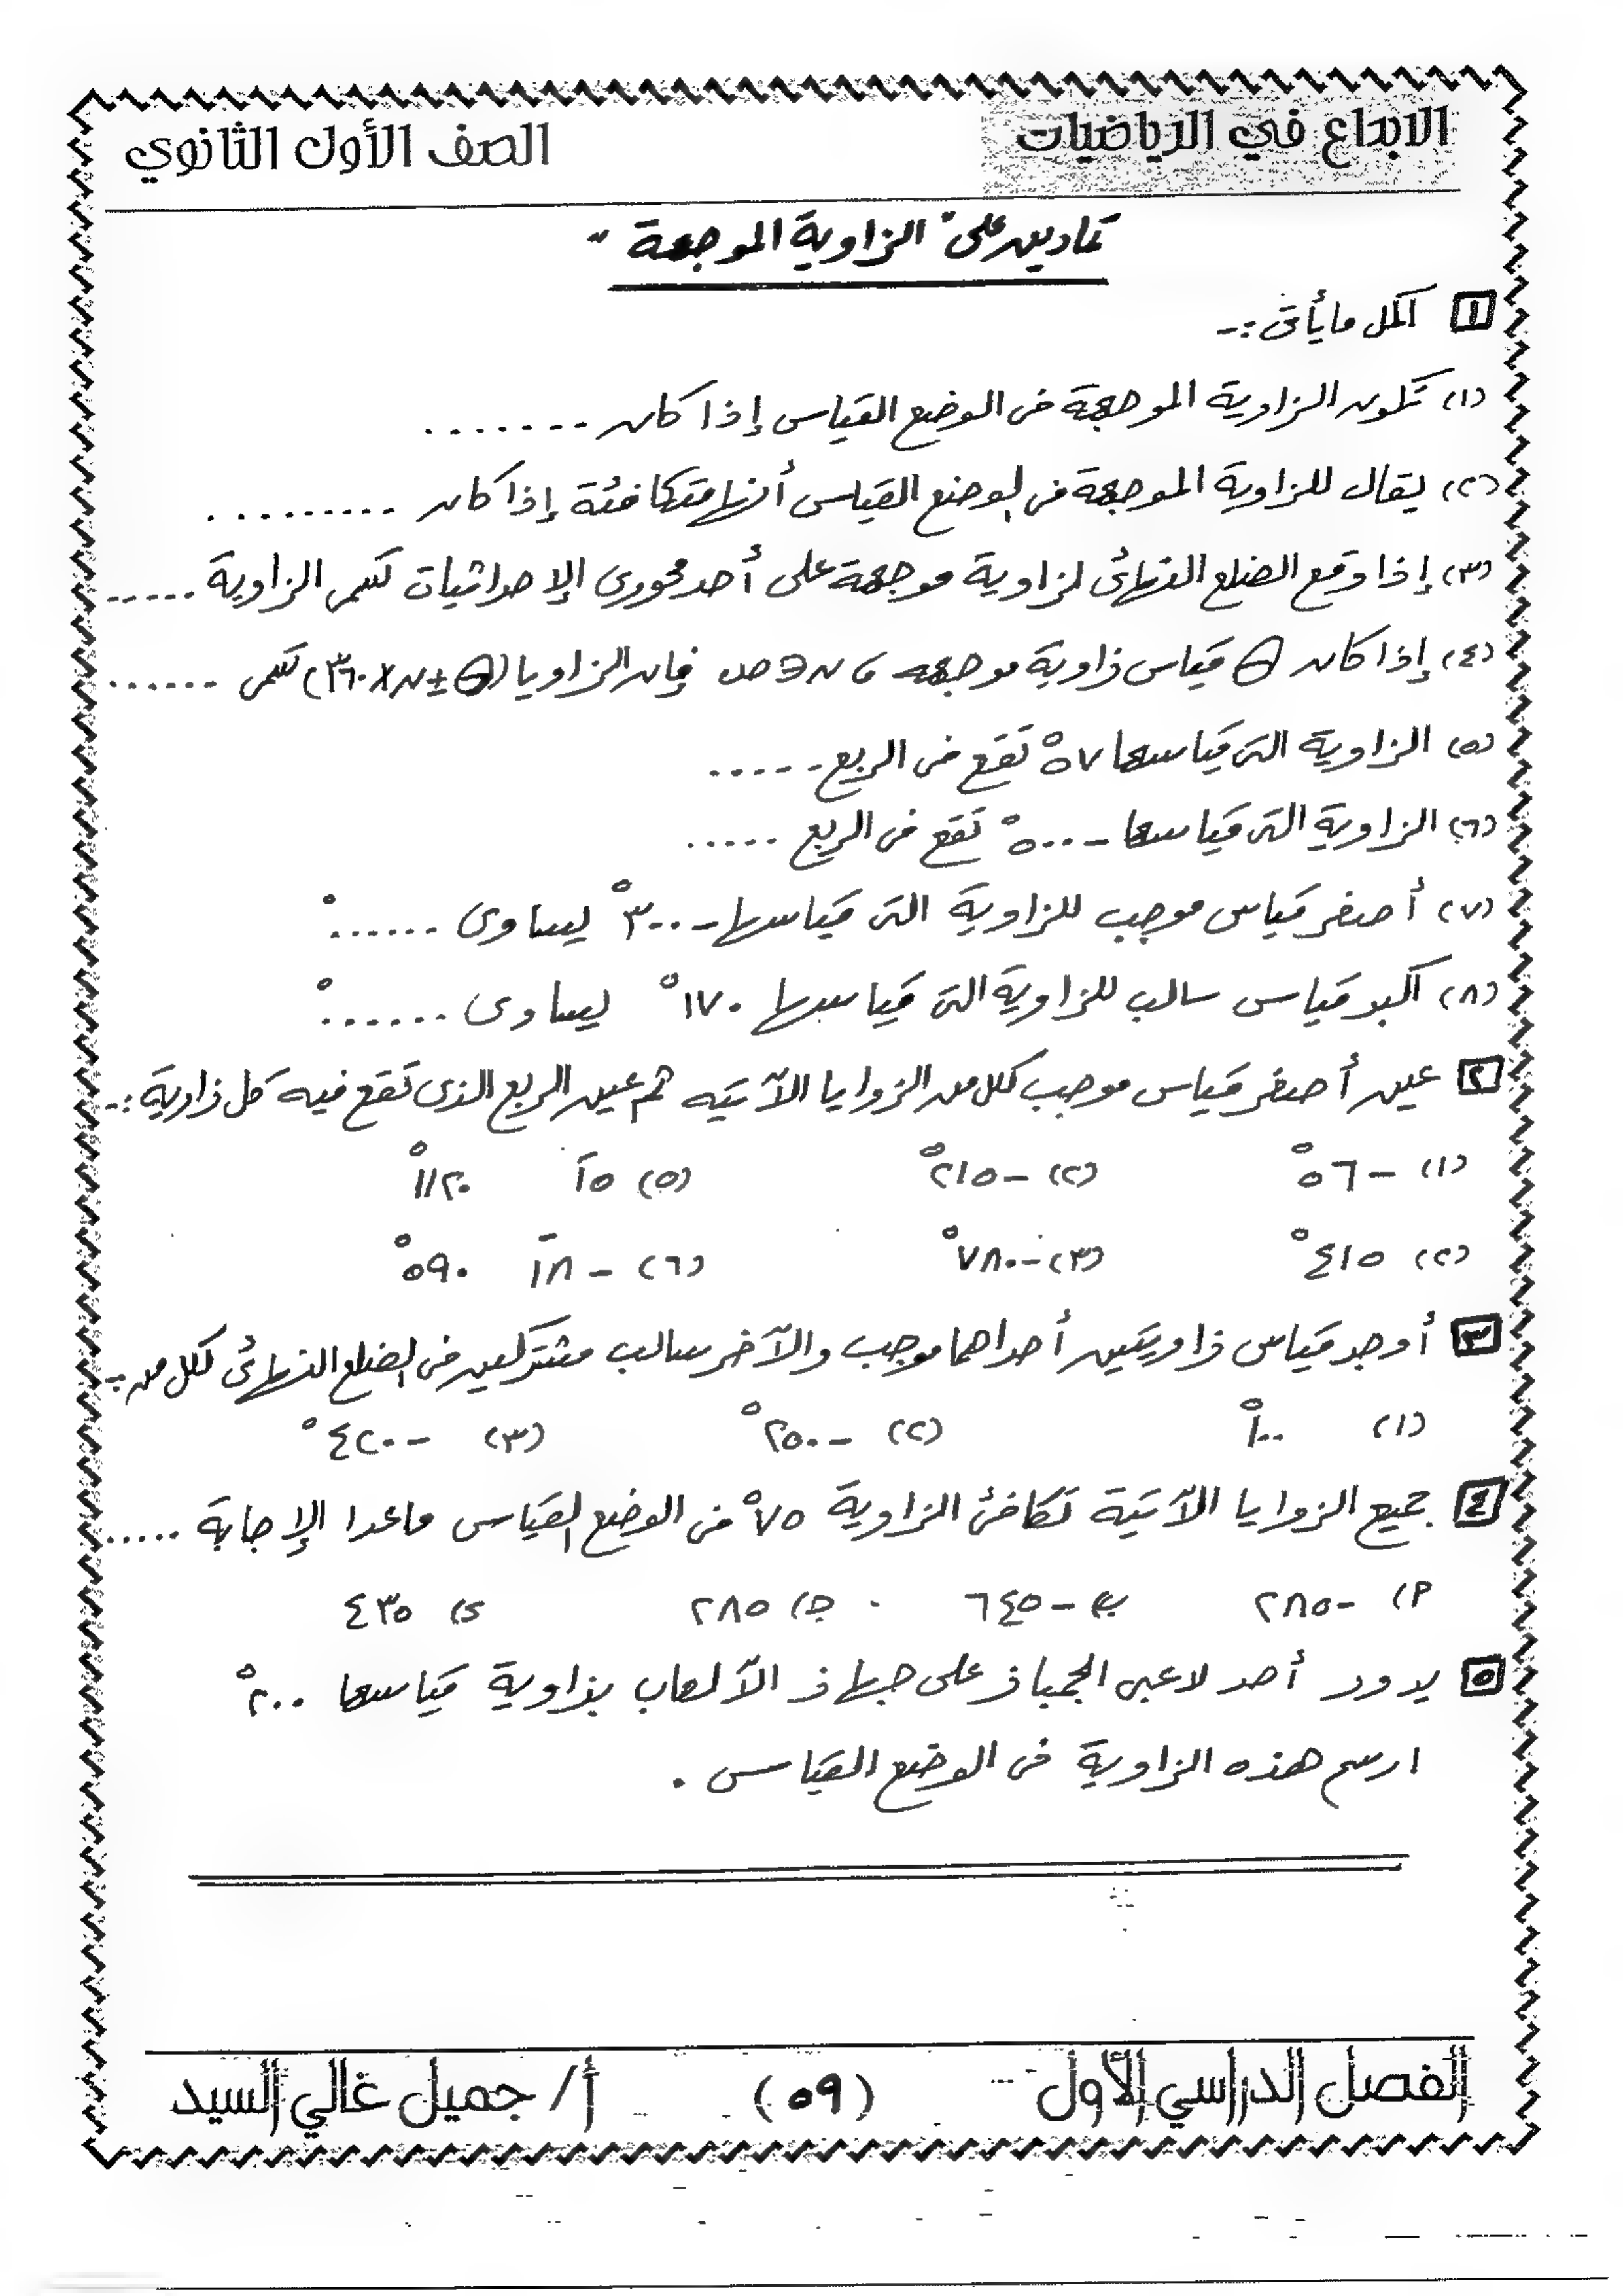 الابداع في الرياضيات
الصف الأول الثانوي
تمارين على " الزاوية الموجهة "
١ أكمل ما يأتى :-
(١) تكون الزاوية الموجهة فى الوضع القياسى إذا كان .......
(٢) يقال للزاوية الموجهة فى الوضع القياسى أنها متكافئة إذا كان .........
(٣) إذا وقع الضلع النهائى لزاوية موجهة على أحد محورى الإحداثيات تسمى الزاوية .....
(٤) إذا كان θ قياس زاوية موجهه ، ن ∈ ص فإن الزاويا (θ ± ن × ٣٦٠) تسمى ......
(٥) الزاوية التى قياسها ٥٧° تقع فى الربع .....
(٦) الزاوية التى قياسها - ٥٠٠° تقع فى الربع .....
(٧) أصغر قياس موجب للزاوية التى قياسها - ٣٠٠° يساوى ......°
(٨) أكبر قياس سالب للزاوية التى قياسها ١٧٠° يساوى ......°
٢ عين أصغر قياس موجب لكل من الزوايا الآتيه ثم عين الربع الذى تقع فيه كل زاوية :-
(١) - ٥٦° (٢) - ٢١٥° (٥) ١٥َ ١١٢٠°
(٢) ٤١٥° (٣) - ٧٨٠° (٦) - ١٨َ ٥٩٠°
٣ أوجد قياس زاويتين أحداهما موجب والآخر سالب مشتركين فى الضلع النهائى لكل من :-
(١) ١٠٠° (٢) - ٢٥٠° (٣) - ٤٢٠°
٤ جميع الزوايا الآتية تكافئ الزاوية ٧٥° فى الوضع القياسى ماعدا الإجابة .....
(أ) - ٢٨٥ (ب) - ٦٤٥ (ج) ٢٨٥ (د) ٤٣٥
٥ يدور أحد لاعبى الجمباز على جهاز الألعاب بزاوية قياسها ٢٠٠°
ارسم هذه الزاوية فى الوضع القياسى .
الفصل الدراسي الأول
(٥٩)
أ/ جميل غالي السيد